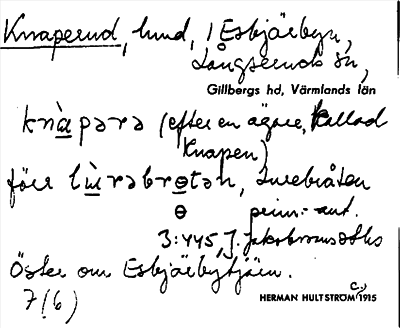 Knaperud, lund, i Esbjörbyn,
Långseruds sn,
Gillbergs hd, Värmlands län
knàpərə (efter en ägare, kallad
Knapen)
förr lùrəbrɵtən, Lurebråten
ɵ prim.-ant.
3:445, J. Jakobsons
Öster om Esbjörbytjärn.
7(6)
HERMAN HULTSTRÖM C:a 1915